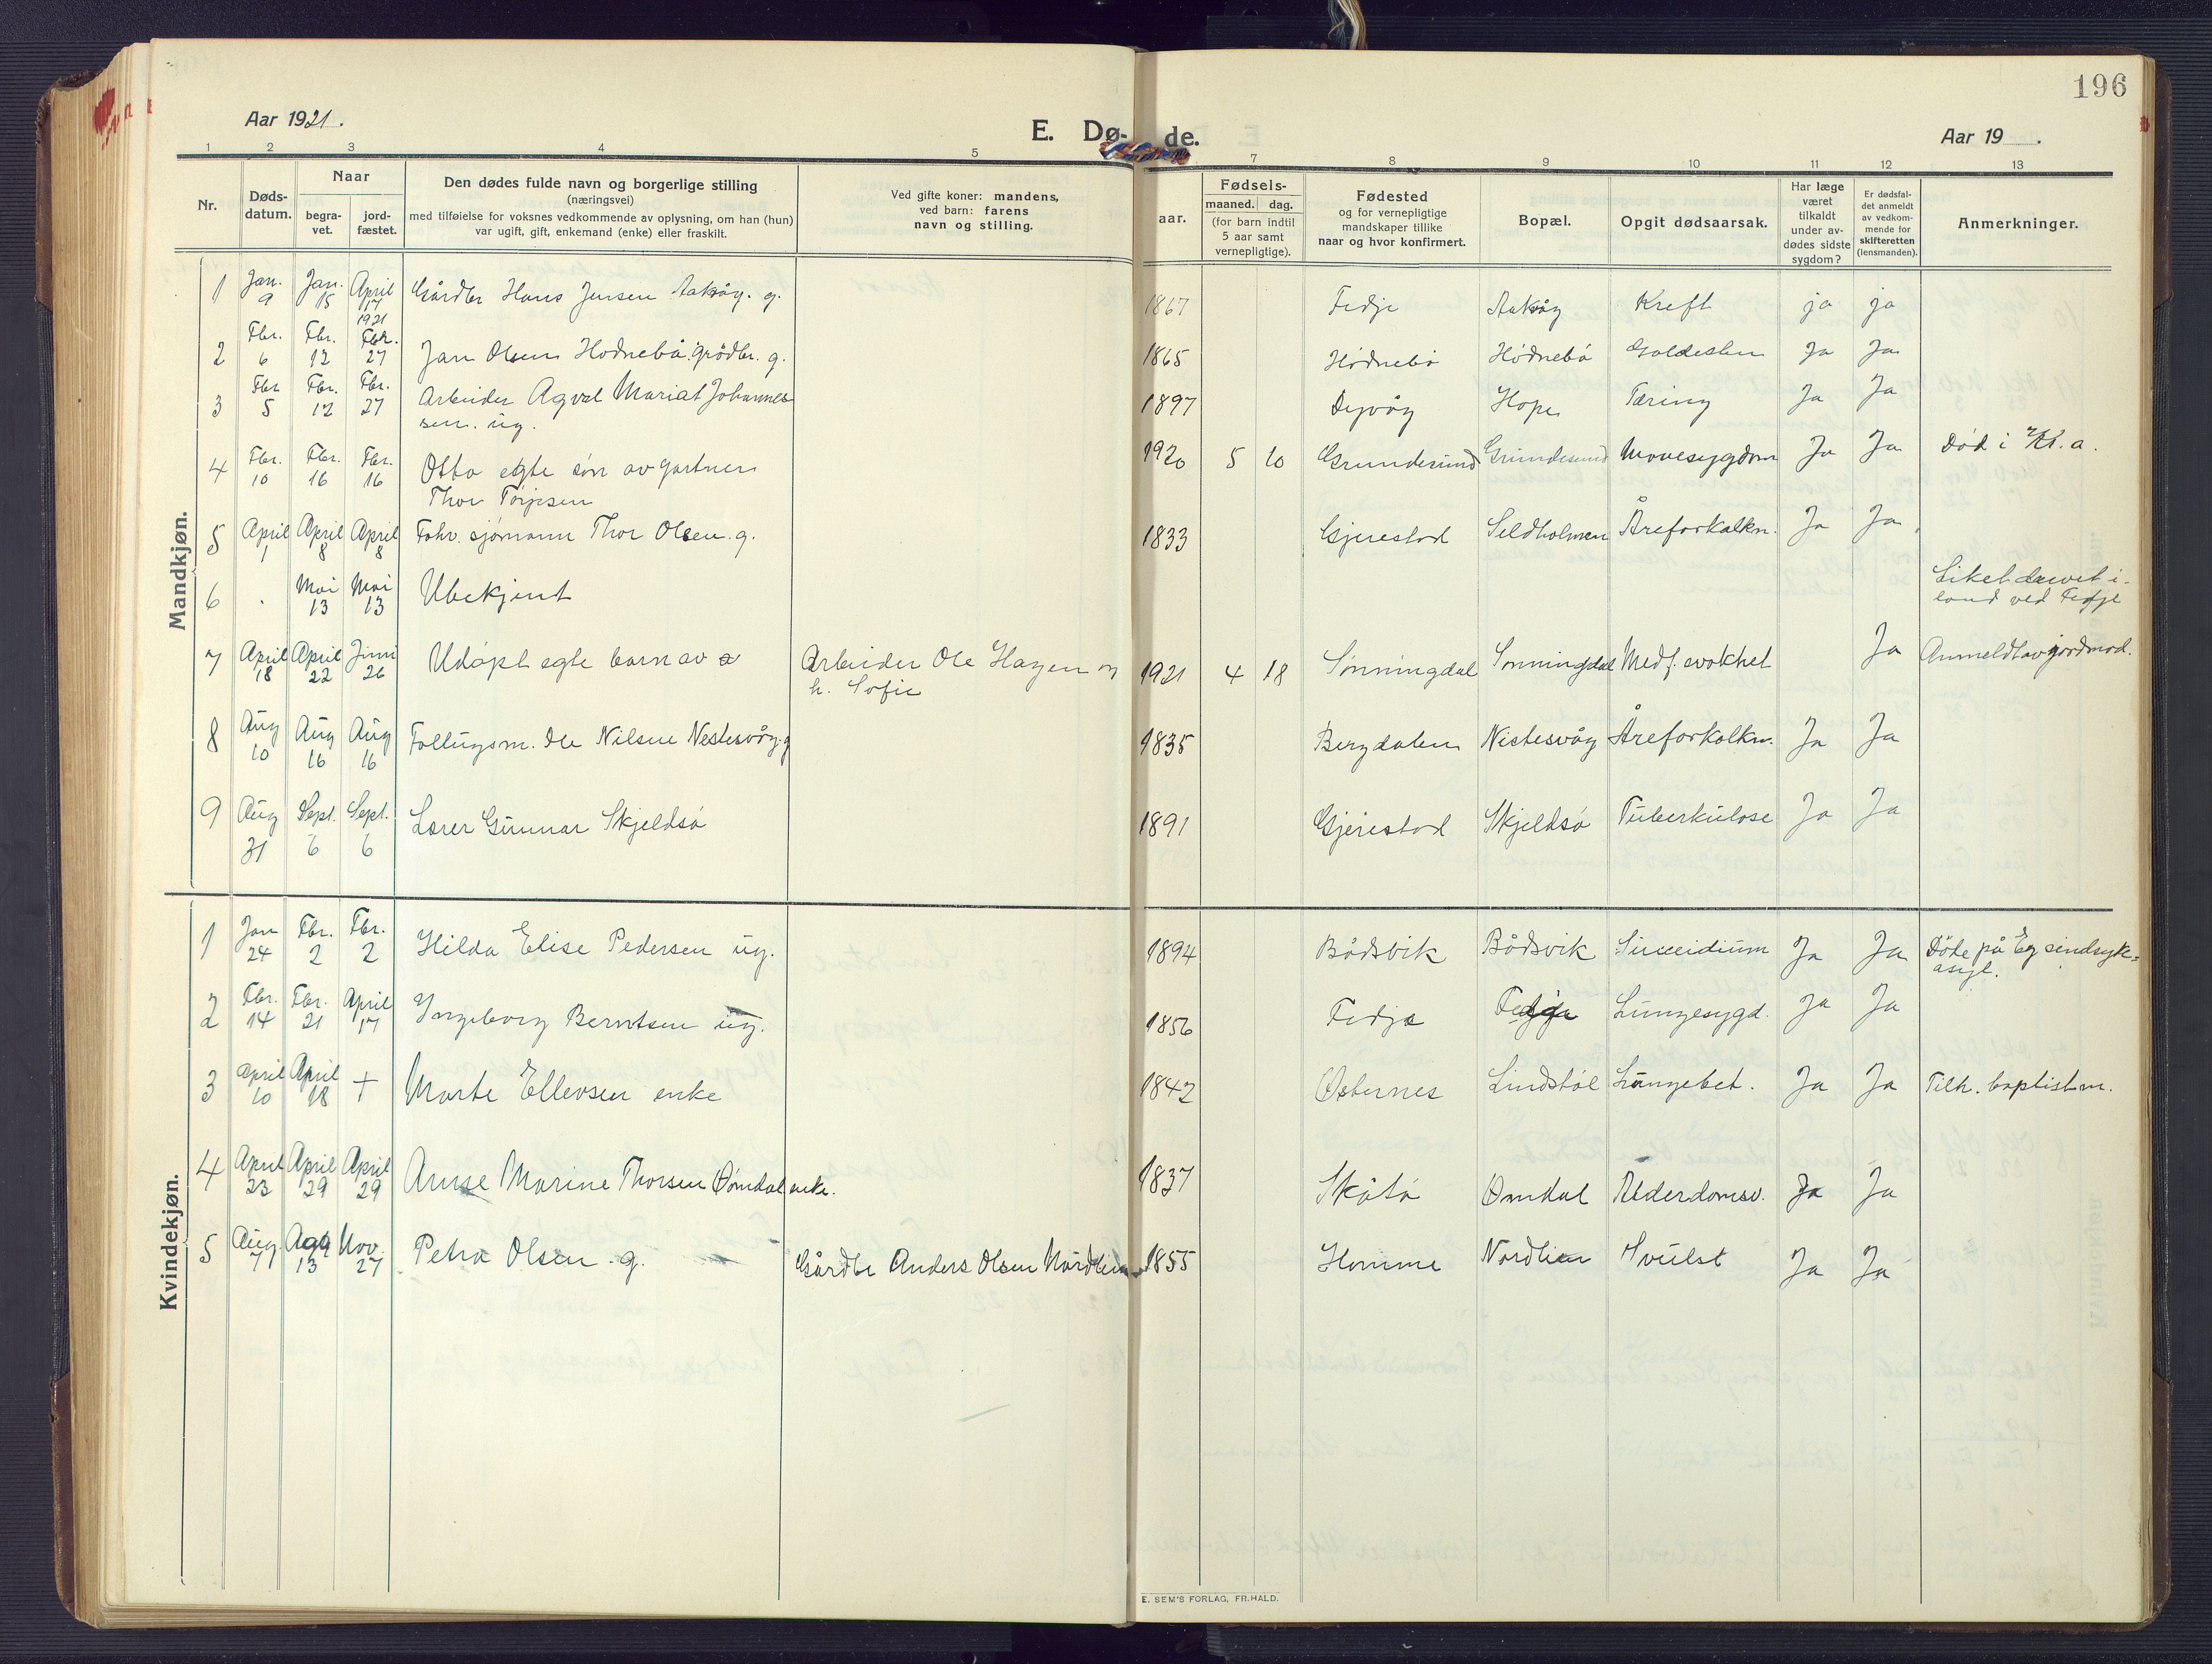 196
Aar 1921.
E. Dø- de.
Aar 19 .
1 2 3 4 5 7 8 9 10 11 12 13
Nr.
Døds-
datum.
Naar
begra-
vet.
jord-
fæstet.
Den dødes fulde navn og borgerlige stilling
(næringsvei)
med tilføielse for voksnes vedkommende av oplysning, om han (hun)
var ugift, gift, enkemand (enke) eller fraskilt.
Ved gifte koner: mandens,
ved barn: farens
navn og stilling.
aar.
Fødsels-
maaned. dag.
(for barn indtil
5 aar samt
vernepligtige).
Fødested
og for vernepligtige
mandskaper tillike
naar og hvor konfirmert.
Bopæl.
Opgit dødsaarsak.
Har læge
været
tilkaldt
under av-
dødes sidste
sygdom?
Er dødsfal-
det anmeldt
av vedkom-
mende for
skifteretten
(lensmanden).
Anmerkninger.
Mandkjøn.
1 Jan. 9 Jan. 15 April 17 1921 Gårdbr Hans Jensen Aakvåg. g. 1867 Fedje Aakvåg Kreft ja ja
2 Fbr. 6 Fbr. 12 Fbr. 27 Jan Olsen Hødnebø. grdbr. g. 1865 Hødnebø Hødnebø Galdesten Ja Ja
3 Fbr 5 Fbr. 12 Fbr. 27 Arbeider Agval Mariat Johannes-
sen. ug. 1897 Dypvåg Hope Tæring Ja Ja
4 Fbr. 10 Fbr. 16 Fbr. 16 Otto egte søn av gartner
Thor Torjesen 1920 5 10 Grundesund Grundesund Mavesygdom Ja Ja Død i Kr.a.
5 April 1 April 8 April 8 Fohv. sjømann Thor Olsen. g. 1833 Gjerestad Seldholmen Åreforkalkn. Ja Ja
6 . Mai 13 Mai 13 Ubekjent Liket drevet i-
land ved Fedje
7 April 18 April 22 Juni 26 Udøpt egte barn av Arbeider Ole Hagen og
h. Sofie 1921 4 18 Sønningdal Sønningdal Medf. svakhet Ja Anmeldt av jordmod.
8 Aug 10 Aug 16 Aug 16 Follugsm. Ole Nilsen Nestesvåg. g 1835 Bergdalen Nestesvåg Åreforkalkn. Ja Ja
9 Aug 31 Sept. 6 Sept. 6 Lærer Gunnar Skjeldsø 1891 Gjerestad Skjeldsø Tuberkulose Ja Ja
Kvindekjøn.
1 Jan 24 Fbr. 2 Fbr. 2 Hilda Elise Pedersen ug. 1894 Bådsvik Bådsvik Succidium Ja Ja Døde på Eg sindsyke=
asyl.
2 Fbr. 14 Fbr. 21 April 17 Ingeborg Berntsen ug. 1856 Fedje Fedje Lungesygd. Ja Ja
3 April 10 April 18 + Marte Ellevsen enke 1842 Østernes Lindstøl Lungebet. Ja Ja Tilh. baptistm.
4 April 23 April 29 April 29 Anne Marine Thorsen Ømdal enke. 1837 Skåtø Ømdal Alderdomsv. Ja Ja
5 Aug. 7 Aug 13 Nov. 27 Petra Olsen. g. Gårdbr Anders Olsen Nordlien 1855 Homme Nordlien Svulst Ja Ja
E. SEM'S FORLAG, FR.HALD.